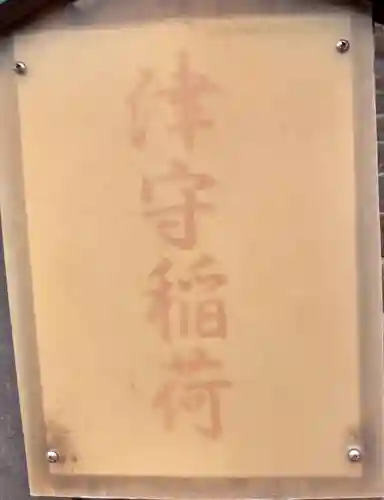 津守稲荷